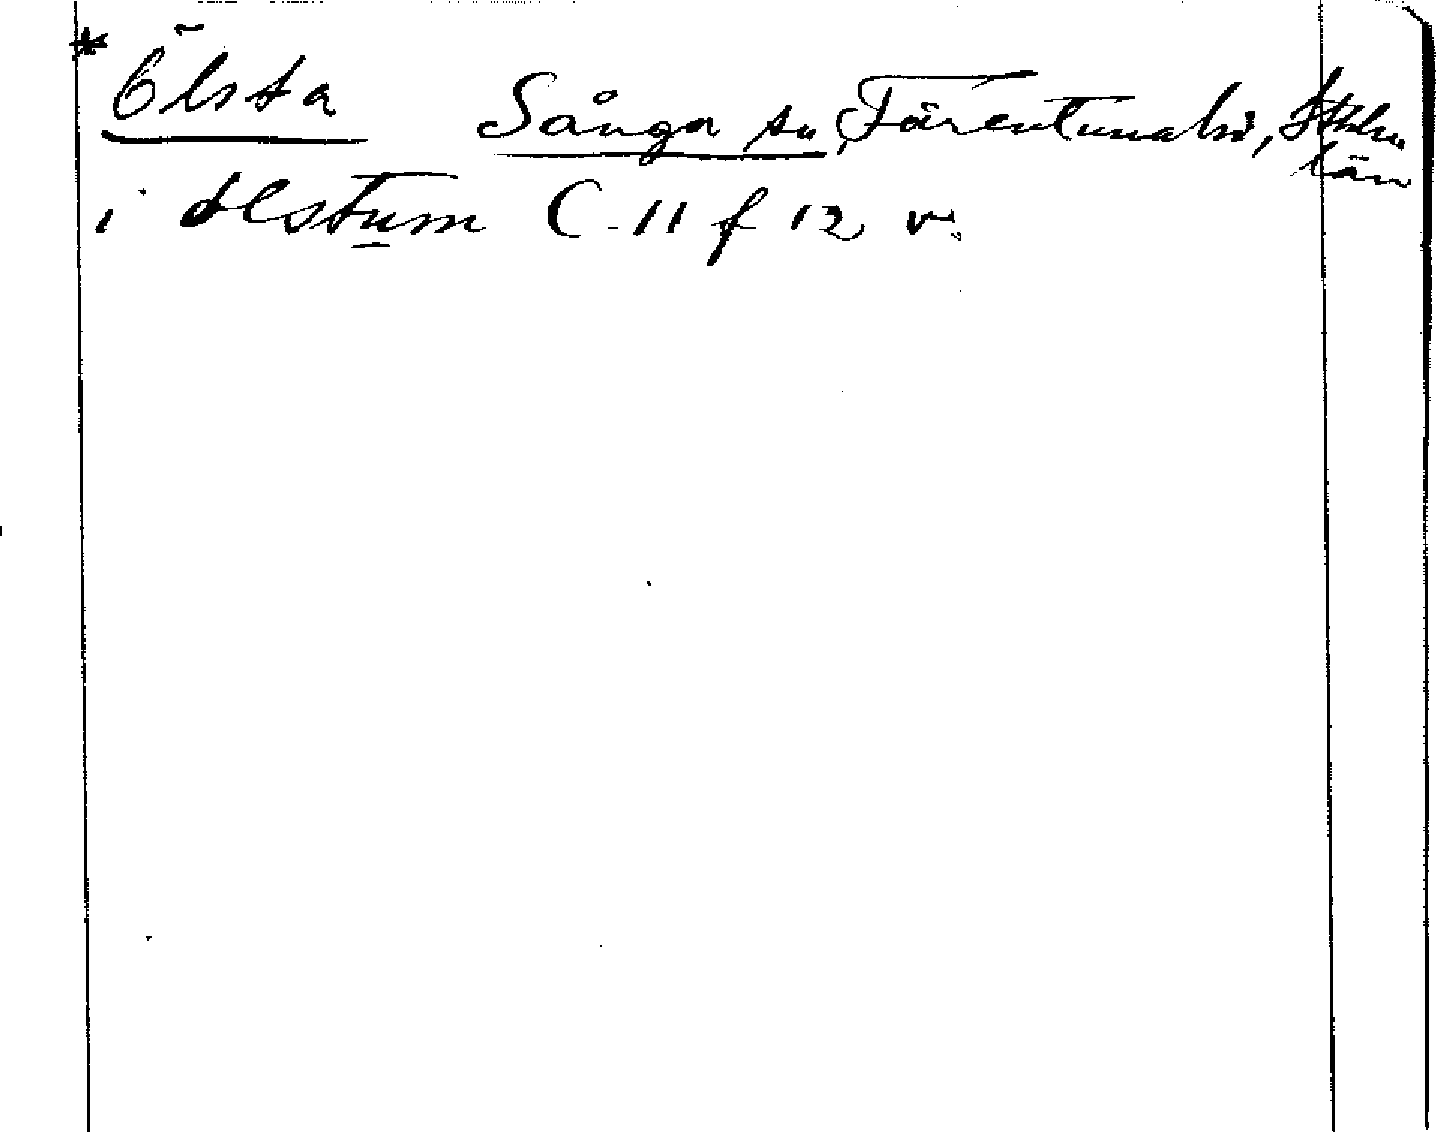 * Ölsta Sånga sn, Färentuna hd, Sthlms
län
i ølstum C 11 f 12 v.